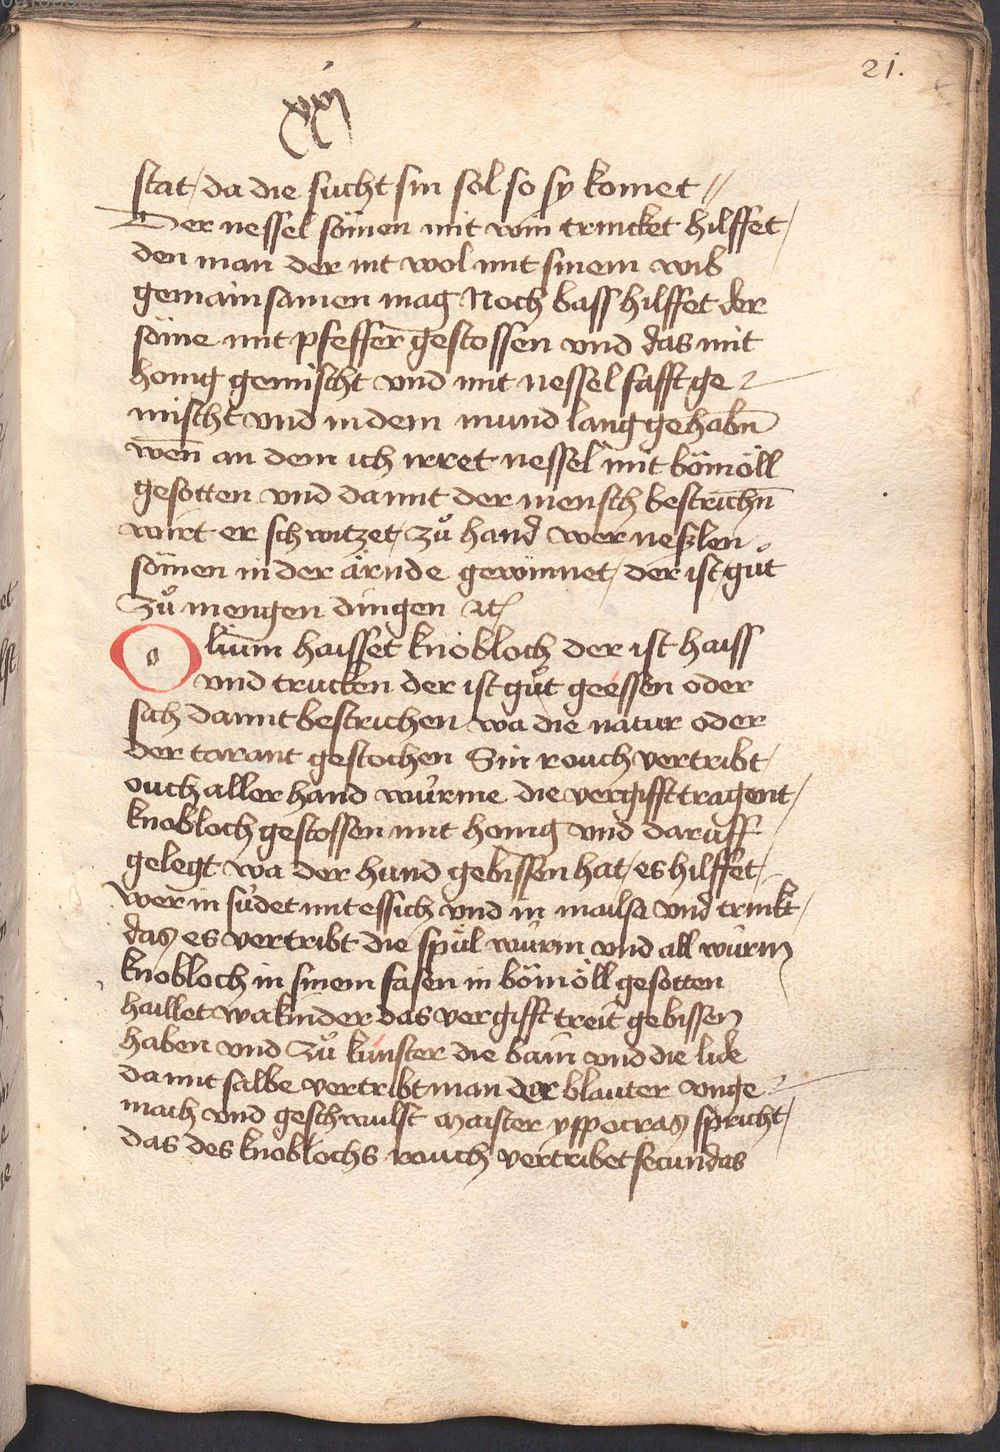 21.
xxj
stat / da die sucht sin sol so sy komet //
Der nessel sömen mit win trincket hilffet /
den man der nit wol mit sinem wib
gemainsamen mag Noch bass hilffet der
söme mit pfeffer gestossen vnd das mit
honig gemischt vnd mit nessel safft ge
mischt vnd in dem mund lang gehabn̄
wen̄ an dem ich irret nessel mit bömöll
gesotten vnd da mit der mensch bestrichn̄
wirt er schwitzet / zů hand wer nesslen
sömen in der ärnde gewinnet / der ist gůt
zů mengen dingen
O lium̄ haisset knobloch der ist haiss
vnd trucken der ist gůt geessen oder
sich da mit bestrichen wa die natur oder
der tarant gestochen Sin rouch vertribt /
ouch aller hand würme die vergifft tragent /
knobloch gestossen mit honig vnd daruff
gelegt wa der hund gebissen hat / es hilffet /
wer in südet mit essich vnd in mailsa vnd trinkt /
das es vertribt die spül würm vnd all würm
knobloch in sinem fasen in bömöll gesotten
haillet wa kinder das vergifft treit gebissen
haben vnd zů kunster die bain vnd die lide
da mit salbe vertribt man der blauter vnge
mach vnd geschwulst maister yppocras spricht /
das des knoblochs rouch vertribet secundas